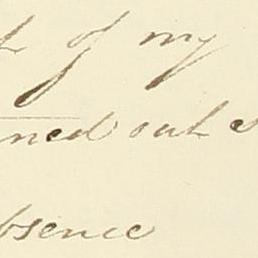 of my
ned out
bsence